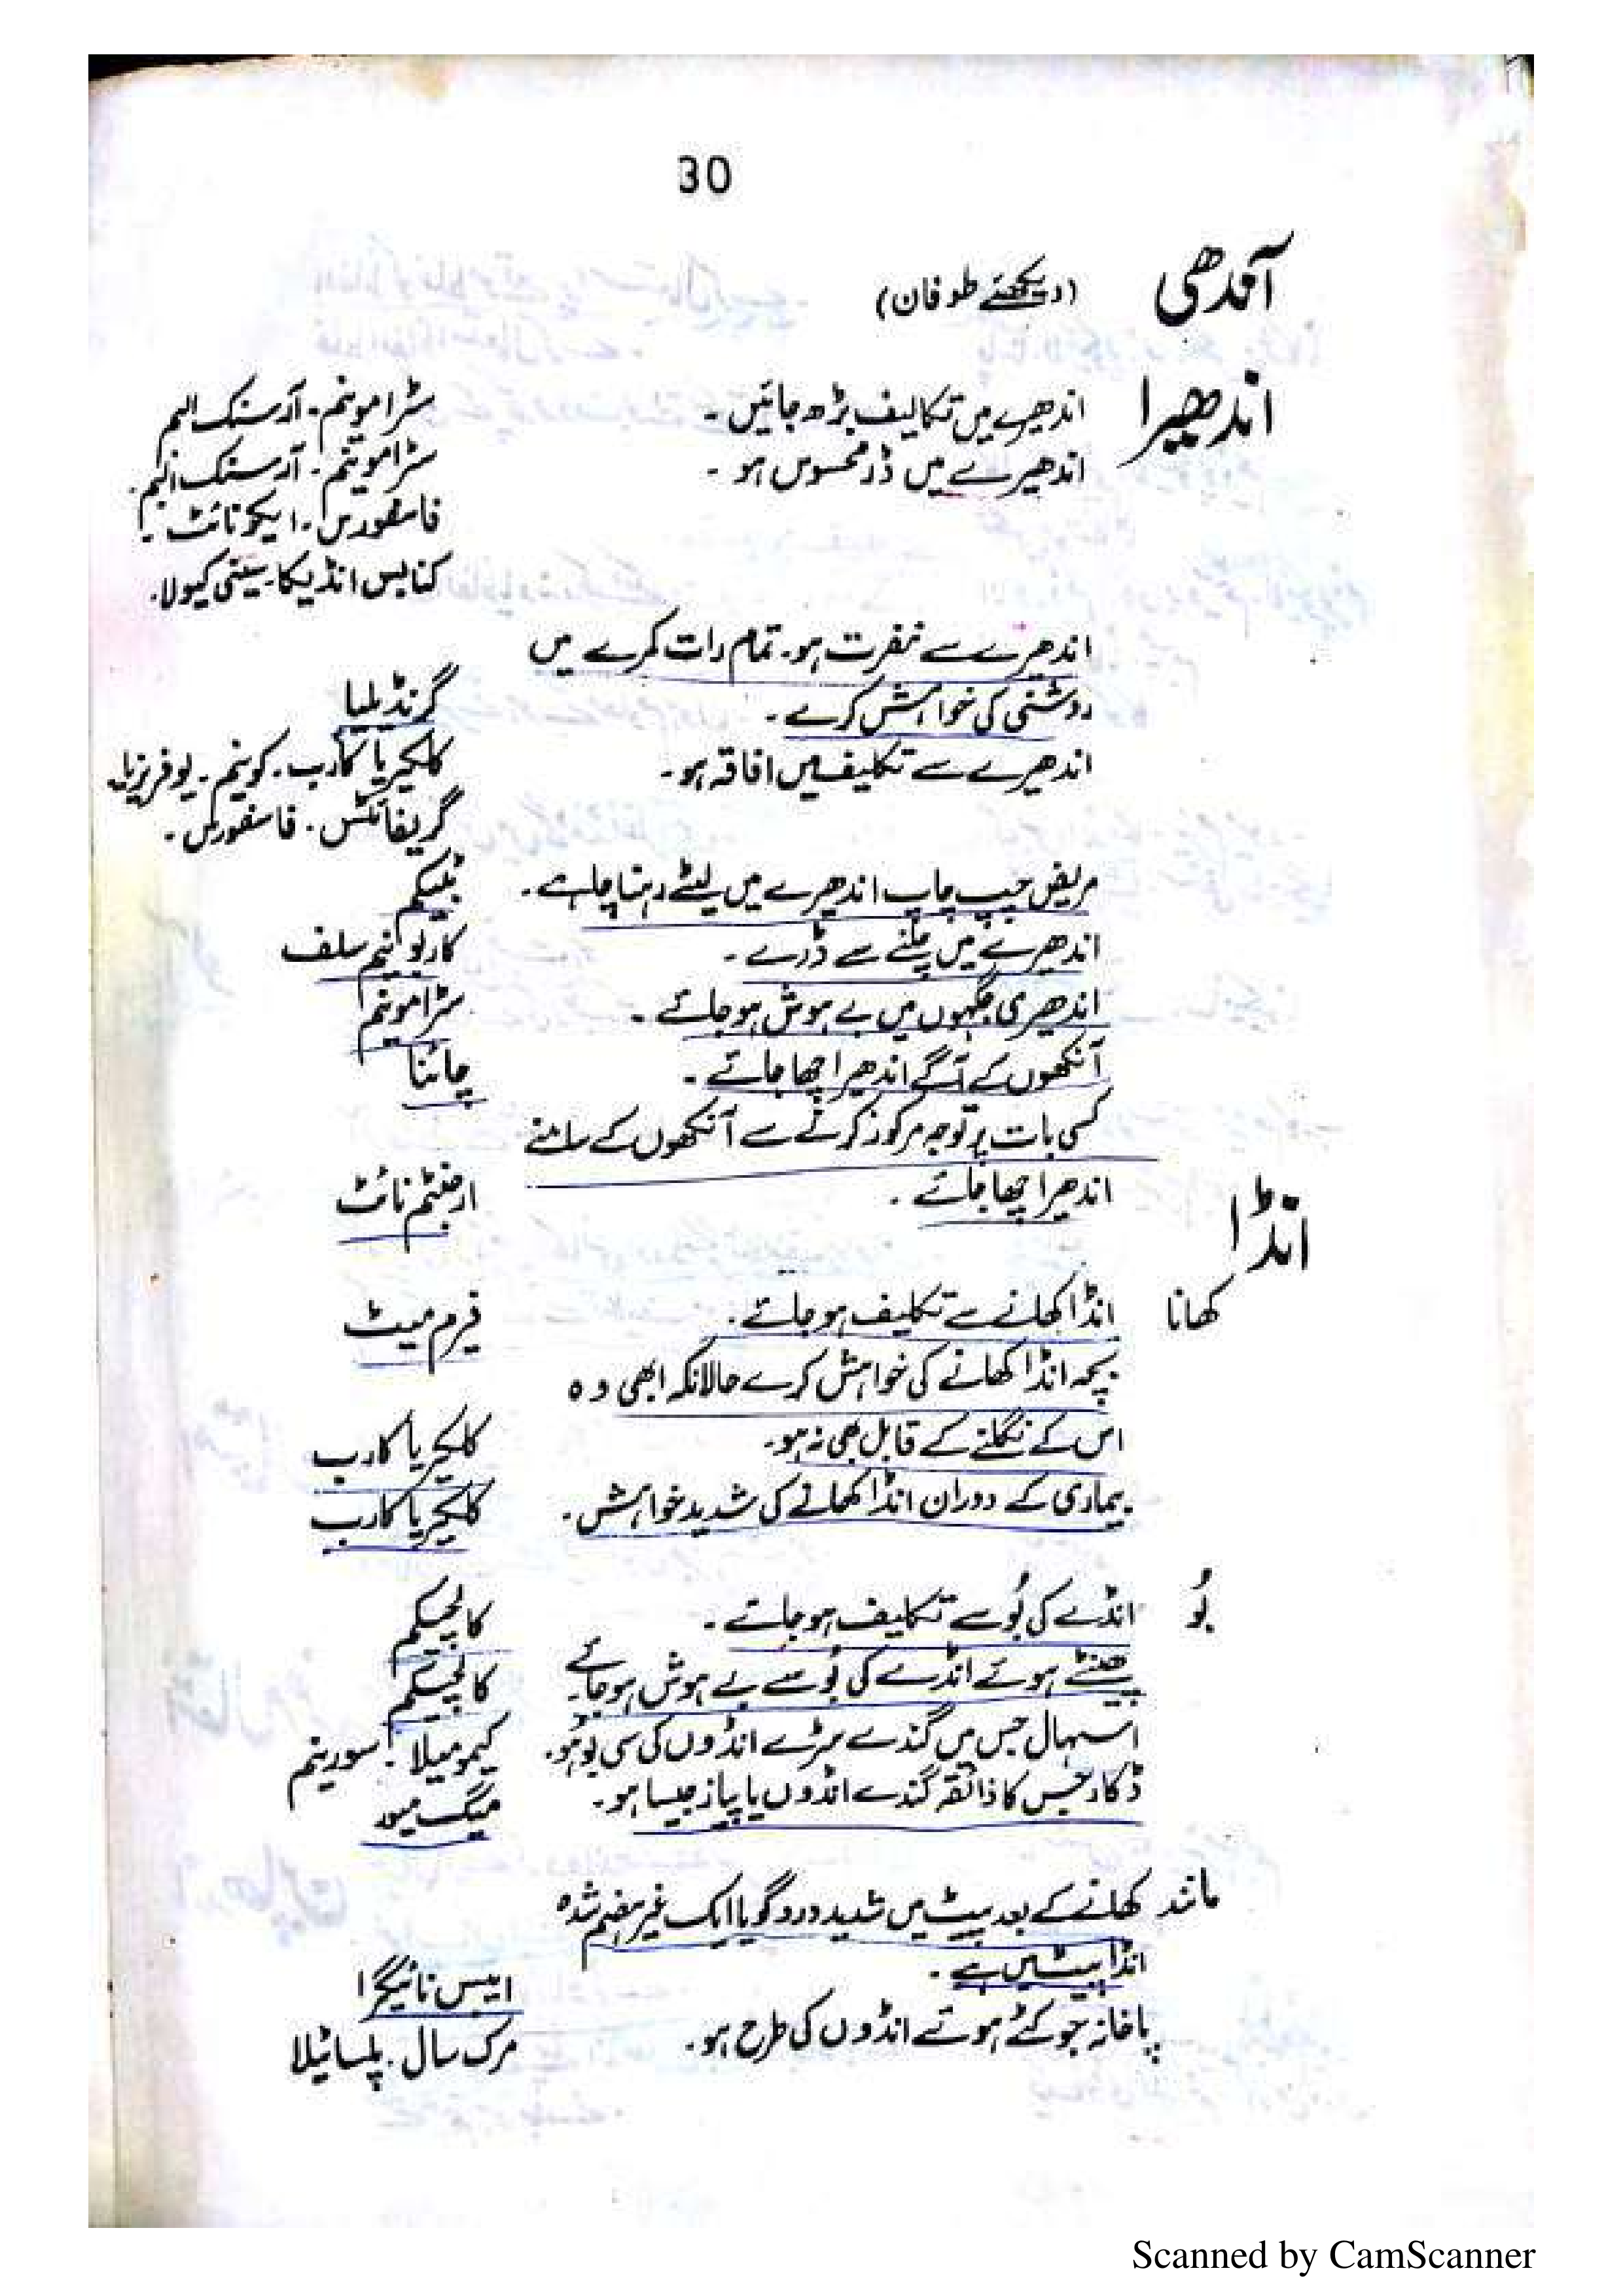 30
آندھی (دیکھئے طوفان)
اندھیرا اندھیرے میں تکالیف بڑھ جائیں۔ سٹرامونیم۔ آرسنک البم
اندھیرے میں ڈر محسوس ہو۔ سٹرامونیم۔ آرسنک البم۔
فاسفورس۔ ایکونائٹ۔
کنابس انڈیکا۔ سینی کیولا۔
اندھیرے سے نفرت ہو۔ تمام رات کمرے میں
روشنی کی خواہش کرے۔ گرنڈیلیا
اندھیرے سے تکلیف میں افاقہ ہو۔ کلکیریا کارب۔ کونیم۔ یوفریزیا۔
گریفائٹس۔ فاسفورس۔
مریض چپ چاپ اندھیرے میں لیٹے رہنا چاہے۔
اندھیرے میں چلنے سے ڈرے۔ کاربونیم سلف
اندھیری جگہوں میں بے ہوش ہو جائے۔ سٹرامونیم
آنکھوں کے آگے اندھیرا چھا جائے۔ چائنا
کسی بات پر توجہ مرکوز کرنے سے آنکھوں کے سامنے
اندھیرا چھا جائے۔ ارجنٹم نائٹ
انڈا
کھانا انڈا کھانے سے تکلیف ہو جائے۔ فیرم میٹ
بچہ انڈا کھانے کی خواہش کرے حالانکہ ابھی وہ
اس کے نگلنے کے قابل بھی نہ ہو۔ کلکیریا کارب
بیماری کے دوران انڈا کھانے کی شدید خواہش۔ کلکیریا کارب
بُو انڈے کی بُو سے تکلیف ہو جائے۔ کالچیکم
پھنٹے ہوئے انڈے کی بُو سے بے ہوش ہو جائے۔ کالچیکم
اسہال جس میں گندے سڑے انڈوں کی سی بو ہو۔ کیمومیلا۔ سورینم
ڈکار جس کا ذائقہ گندے انڈوں یا پیاز جیسا ہو۔ میگ میور
مانند کھانے کے بعد پیٹ میں شدید درد گویا ایک غیر ہضم شدہ
انڈا پیٹ میں ہے۔ ابیس نائیگرا
پاخانہ جو کٹے ہوئے انڈوں کی طرح ہو۔ مرک سال۔ پلساٹیلا
Scanned by CamScanner